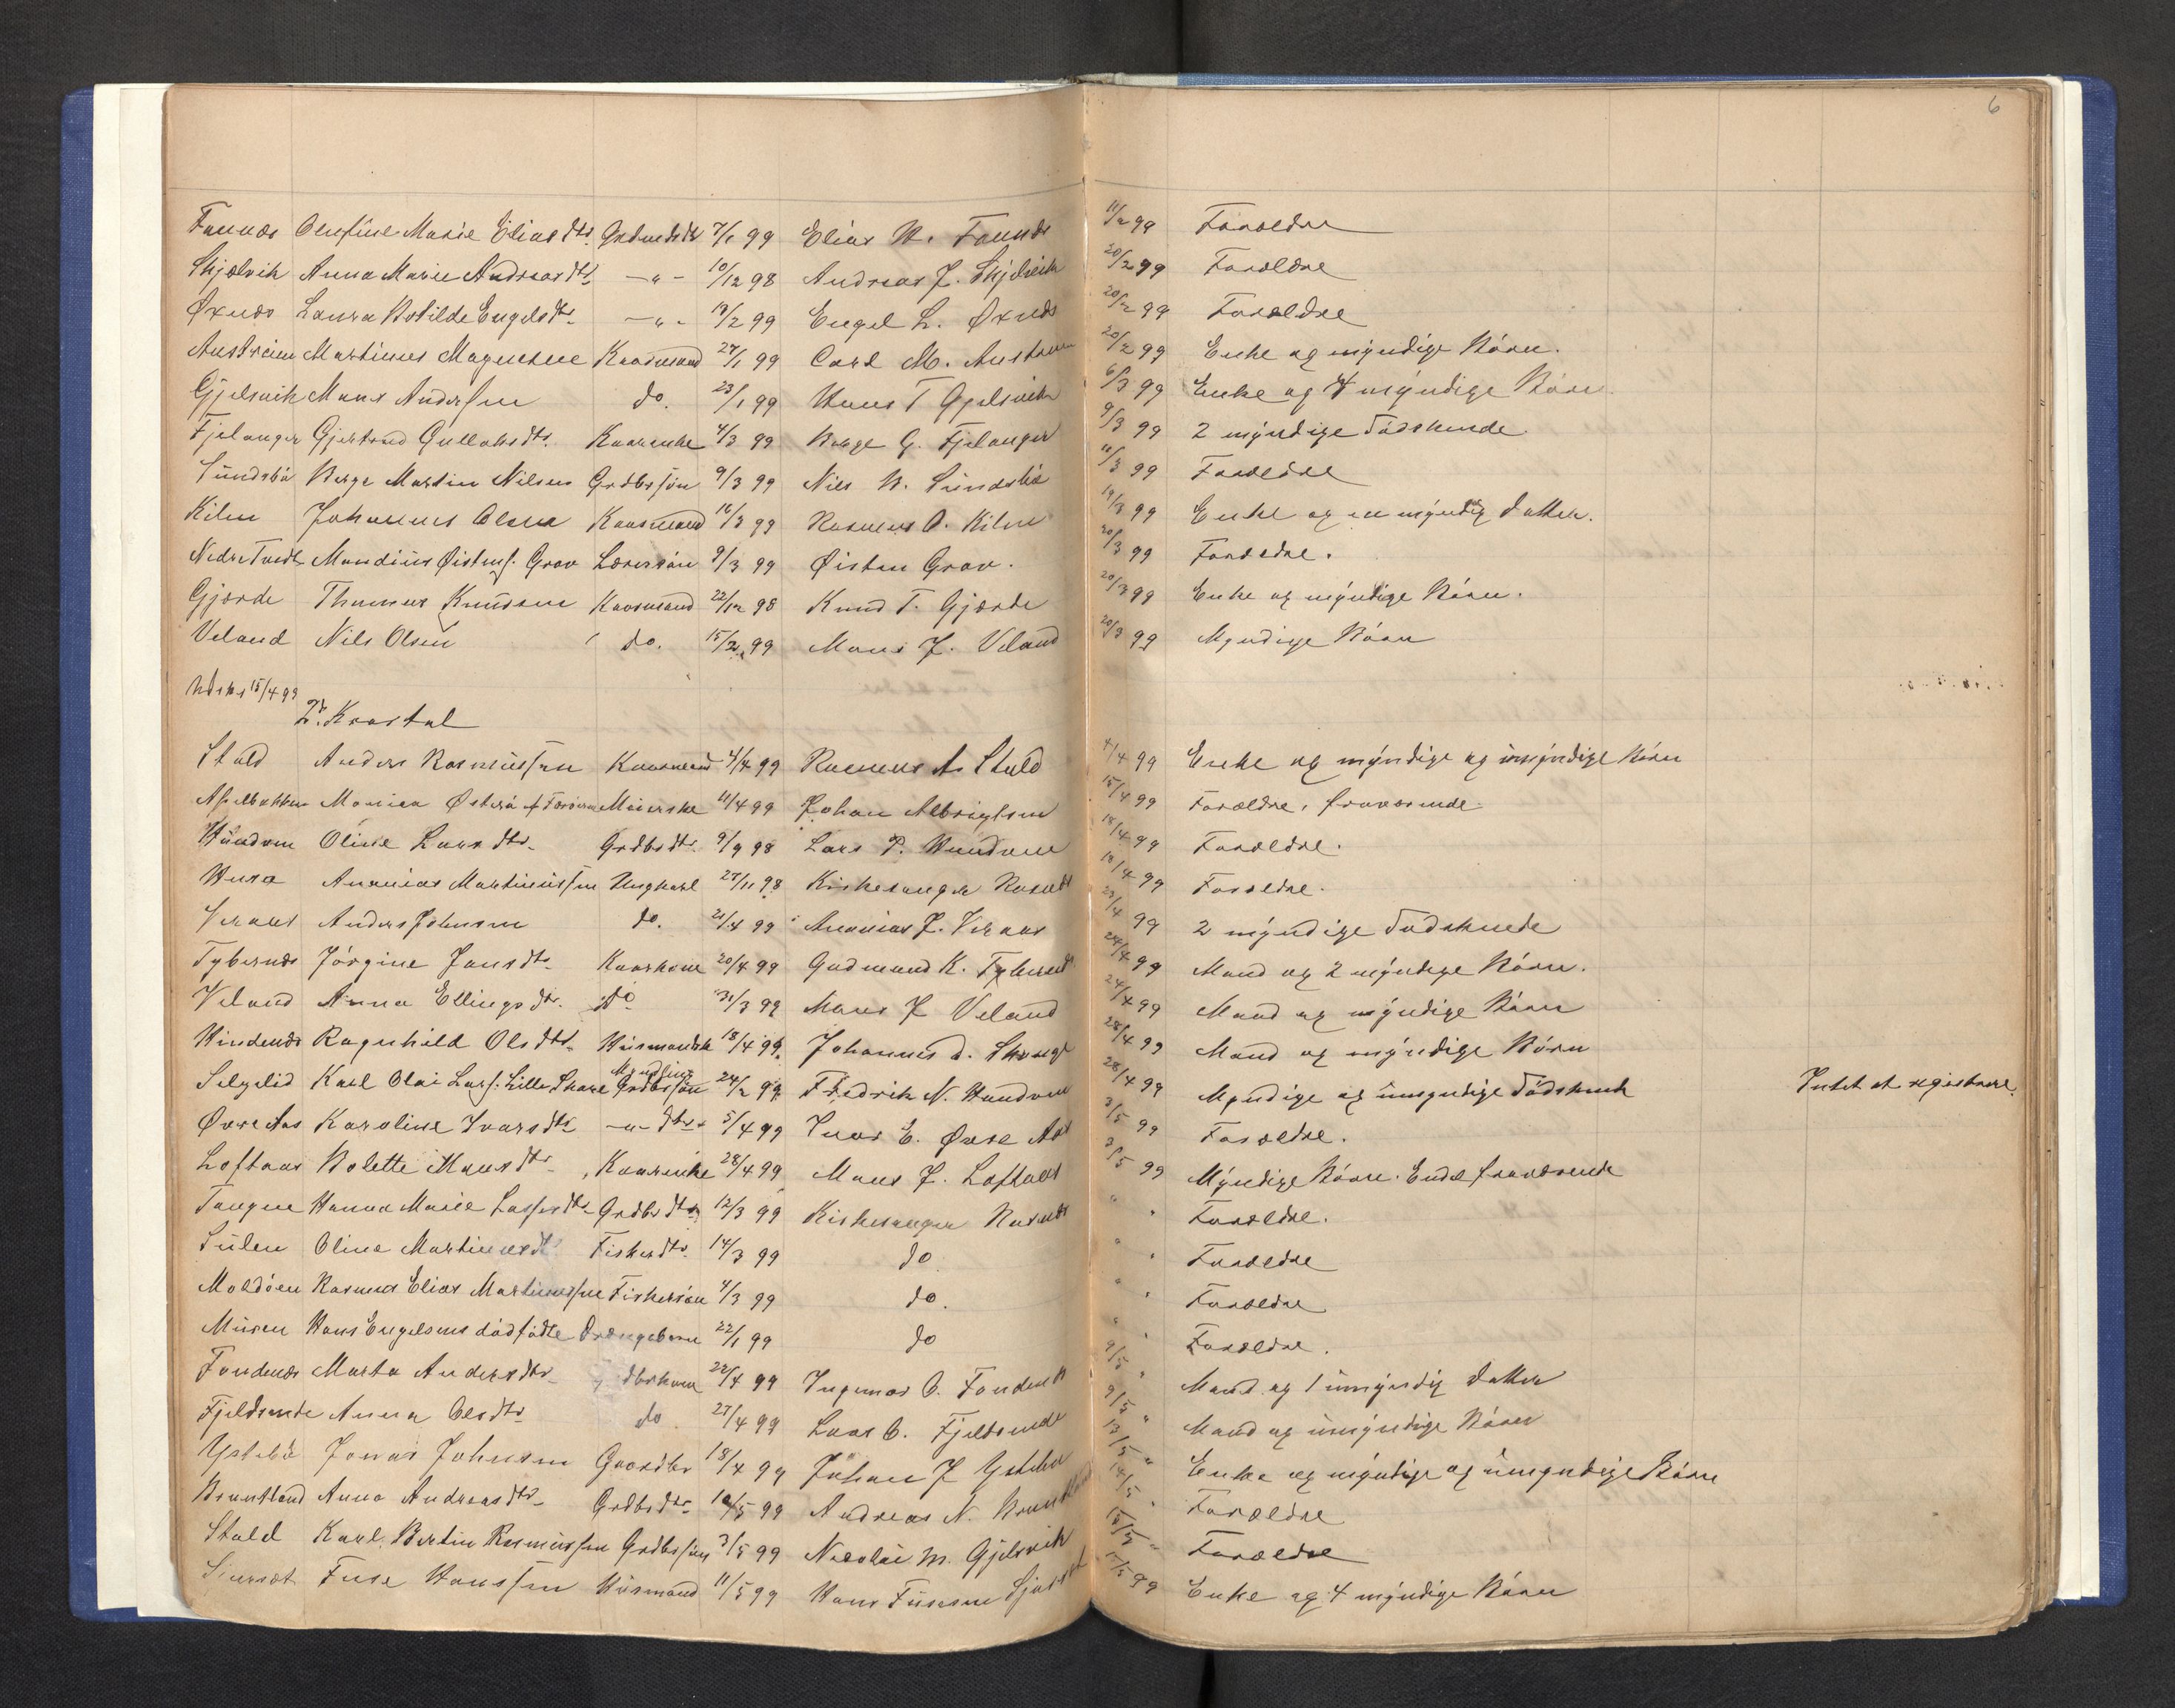 6
Fonnæs Olufine Marie Elias dtr. Grdmds dtr 7/1 99 Elias H. Fonnes 11/2 99 Forældre
Skjælvik Anna Marie Andreas dtr. —"— 10/12 98 Andreas J. Skjelvik 20/2 99 Forældre
Øxnes Laura Botilde Engels dtr. —"— 19/2 99 Engel L. Øxnes 20/2 99 Forældre
Austreim Martinus Magnesene Kaarmand 27/1 99 Carl M. Austreim 20/2 99 Enke og myndige Børn.
Gjelsvik Mons Andersen do. 23/1 99 Hans T Gjelsvik 6/3 99 Enke og 4 myndige Børn
Fjelanger Gjertrud Gullaksdtr. Kaarenke 4/3 99 Børge G. Fjelanger 9/3 99 2 myndige Sødskende
Sundsbø Børge Martin Nilsen Grdbrsøn 9/3 99 Nils B. Sundsbø 11/3 99 Forældre
Kilen Johannes Olsen Kaarmand 16/3 99 Rasmus O. Kilen 19/3 99 Enke og en myndig datter.
Nedre Tvedt Mandius Øistens. Grov Lærersøn 9/3 99 Østen Grov. 20/3 99 Forældre.
Gjærde Thomas Knudsen Kaarmand 22/12 98 Knud T. Gjærde 20/3 99 Enke og myndige Børn.
Veland Nils Olsen do. 15/2 99 Mons J. Veland 20/3 99 Myndige Børn
15/4 99
2. Kvartal
Stuld Anders Rasmussen Kaarmand 4/4 99 Rasmus A. Stuld 4/4 99 Enke og myndige og umyndige Børn
Monica Østerø Meierske 11/4 99 Johan Albrigtsen 15/4 99 Forældre, fraværende
Hundven Oline Lars dtr. Grdbrdtr. 9/9 98 Lars P. Hundven 18/4 99 Forældre.
Ananias Martinussen Ungkarl 27/11 98 Kirkesanger 18/4 99 Forældre.
Anders Johnsen do. 21/4 99 Ananias J. 23/4 99 2 myndige Sødskende
Tybernes Jørgine Jansdtr. Kaarkone 20/4 99 Gudmund K. Tybernes 24/4 99 Mand og 2 myndige Børn.
Veland Anna Ellingsdtr. do 31/3 99 Mons J Veland 24/4 99 Mand og myndige Børn
Hindenes Ragnhild Olsdtr. Husmandsk 18/4 99 Johannes A. 28/4 99 Mand og myndige Børn
Myndling
Karl Olai Lars. Lille Grdbrsøn 24/2 99 Fredrik N. Hundven 28/4 99 Myndige og umyndige Sødskende Intet at registrere.
Øvre Aas Karoline Ivarsdtr. —"— dtr. 5/4 99 Ivar E. Øvre Aas 3/5 99 Forældre.
Loftaas Bolette Monsdtr. Kaarenke 28/4 99 Mons J. Loftaas 3/5 99 Myndige Børn. Endel fraværende
Tangen Hanna Marie Lasses dtr. Grdbrdtr. 12/3 99 Kirkesanger " " Forældre.
Sulen Oline Martinusdtr Fiskerdtr. 14/3 99 do " " Forældre
Moldøen Rasmus Elias Martinussen Fiskersøn 4/3 99 do. " " Forældre
Muren Hans Engelsens dødfødte Drengebarn 22/1 99 do " " Forældre.
Fondenes Marta Andersdtr. 22/4 99 Ingemar O. Fondenes 9/5 " Mand og 1 umyndig datter
Fjeldsende Anna Olsdtr. do. 27/4 99 Lars O. Fjeldsende 9/5 " Mand og umyndige Børn
Ystebø Jonas Johnsen Gaardbr 18/4 99 Johan J Ystebø 13/5 " Enke og myndige og umyndige Børn
Anna Andreasdtr. Grdbrdtr. 10/5 99 Andreas N. 14/5 " Forældre
Stuld Karl Bertin Rasmussen Grdbrsøn 3/5 99 Nicolai M. Gjelsvik 15/5 " Forældre
Hanssen Husmand 11/5 99 Hans 17/5 99 Enke og 4 myndige Børn